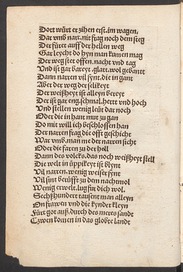 Dort wurt er zihen erst im wagen,
Dar vmb narr, nit frag noch dem steg
Der fürt auff der hellen weg
Gar leycht do hyn man kumen mag
Der weg stet offen, nacht vnd tag
Vnd ist gar bareyt, glatt, wol gebant
Dann narren vil synt, die in gant
Aber der weg der selikeyt
Der weißheyt, ist alleyn bereyt
Der ist gar eng, schmal, hert vnd hoch
Vnd stellen wenig leüt dar noch
Oder die in hant mut zu gan
Do mit will ich beschlossen han
Der narren frag die offt geschicht
War vmb man me der narren sicht
Oder die faren zu der hell
Dann des volcks, das noch weißheyt stell
Die welt in üppikeyt ist blynt
Vil narren, wenig weiser synt
Vil sint berüfft zu dem nachtmol
Wenig erwelt, lug für dich wol
Sechßhundert tausent man alleyn
On frawen vnd die kynder kleyn
Fürt got auß durch des meres sandt
Zwen kamen in das globte landt